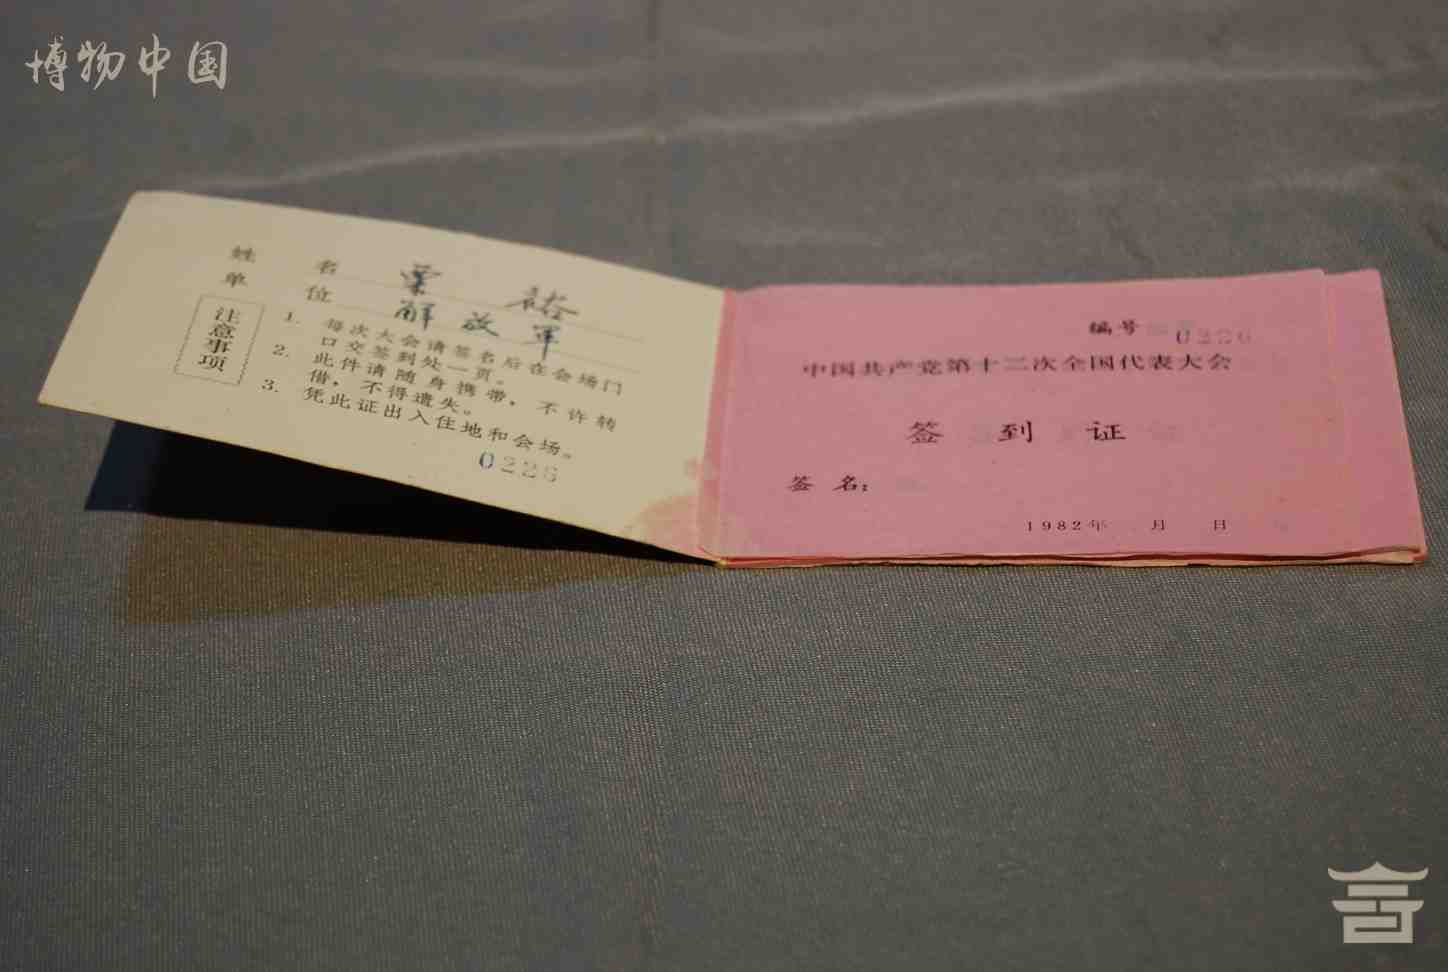 博物中国
姓 名 粟 裕
单 位 解放军
注意事项
1. 每次大会请签名后在会场门
口交签到处一页。
2. 此件请随身携带，不许转
借，不得遗失。
3. 凭此证出入住地和会场。
0226
编号 0226
中国共产党第十二次全国代表大会
签 到 证
签 名：
1982年 月 日